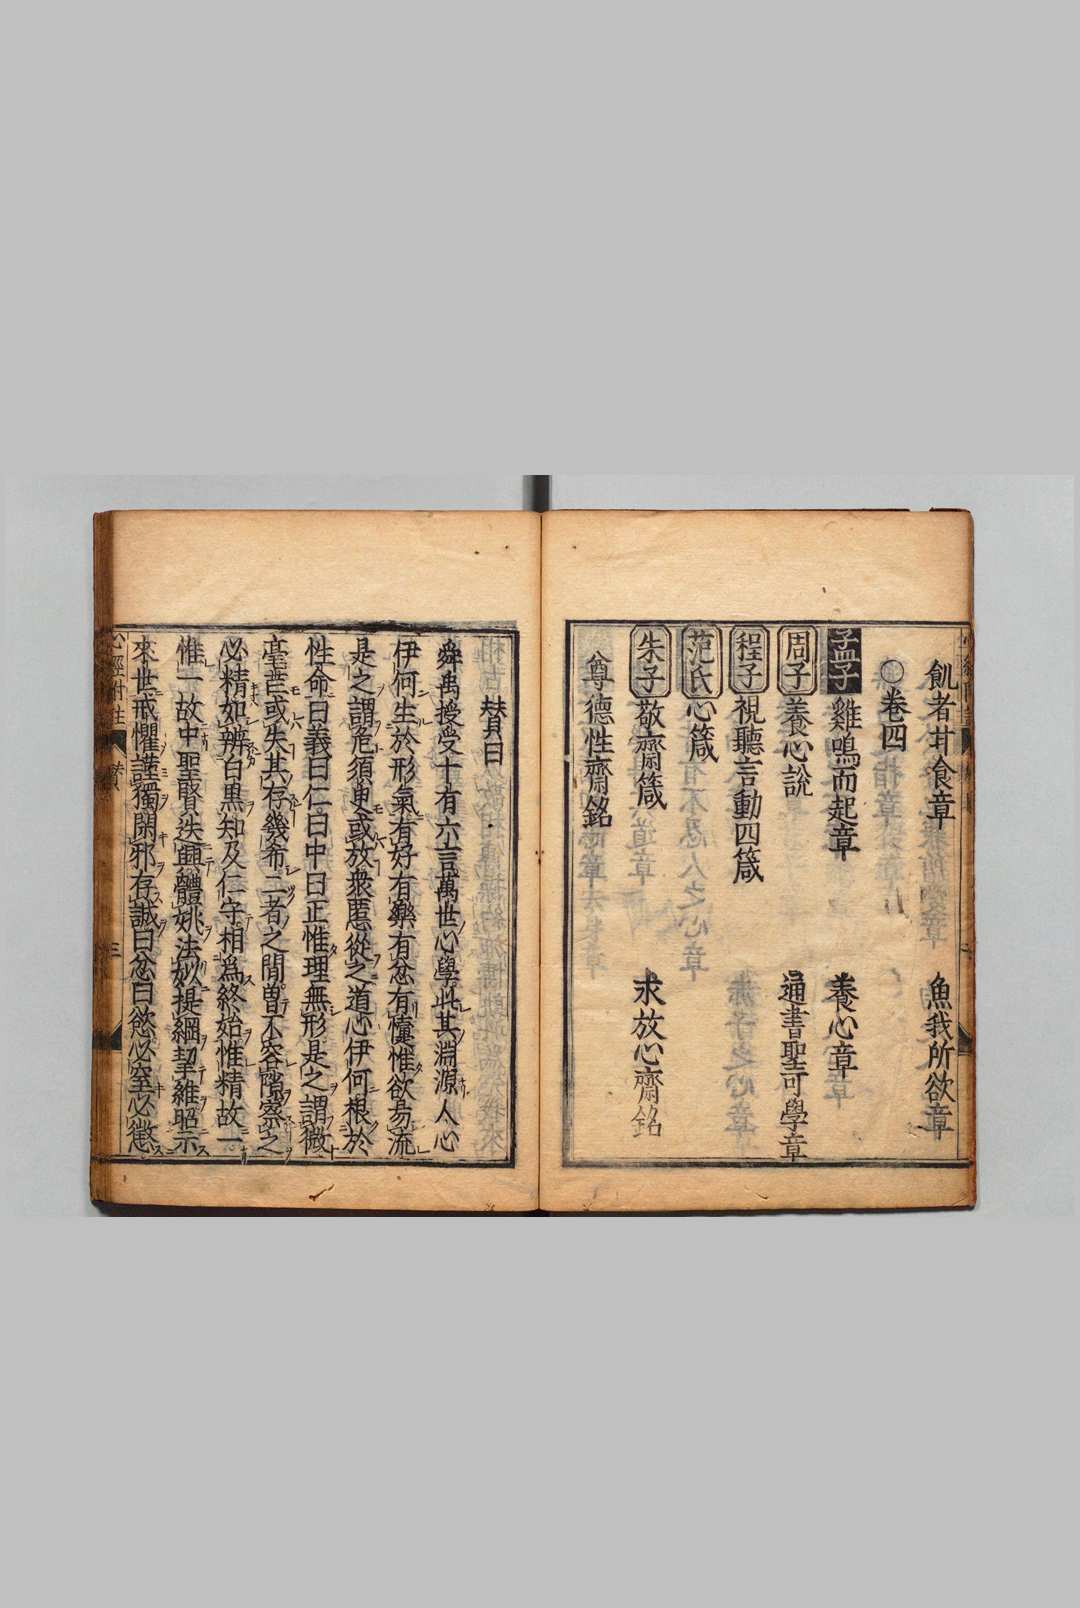 飢者甘食章　魚我所欲章
○卷四
孟子　雞鳴而起章　養心章
周子　養心說　通書聖可學章
程子　視聽言動四箴
范氏　心箴
朱子　敬齋箴　求放心齋銘
尊德性齋銘
贊曰
舜禹授受十有六言萬世心學此其淵源人心
伊何生於形氣有好有樂有忿有懥惟欲易流
是之謂危須臾或放衆慝從之道心伊何根於
性命曰義曰仁曰中曰正惟理無形是之謂微
毫芒或失其存幾希二者之間曾不容隙察之
必精如辨白黒知及仁守相爲終始惟精故一
惟一故中聖賢迭興體姚法姒提綱挈維昭示
來世戒懼謹獨閑邪存誠曰忿曰慾必窒必懲
心經附註　贊　三